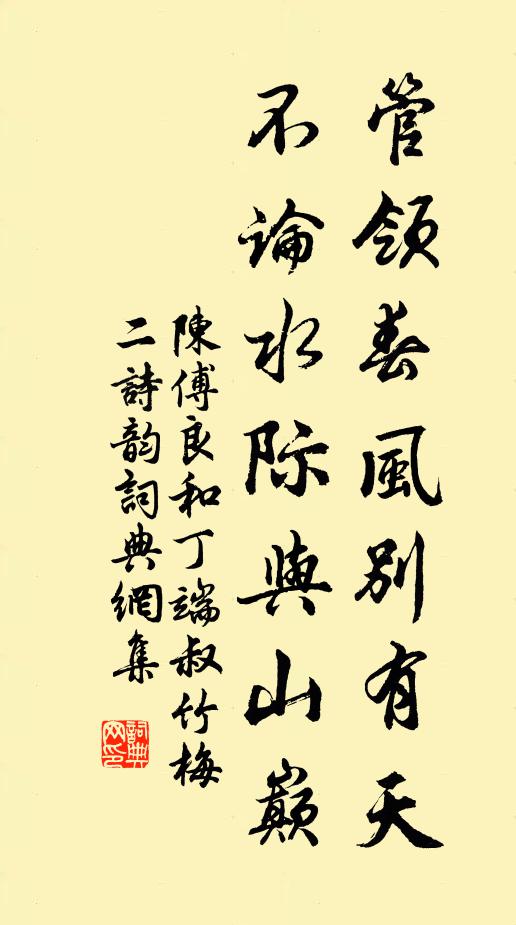 管領春風別有天
不論水际與山巔
陳傅良和丁端叔竹梅
二詩韵詞典網集
詞典
网印